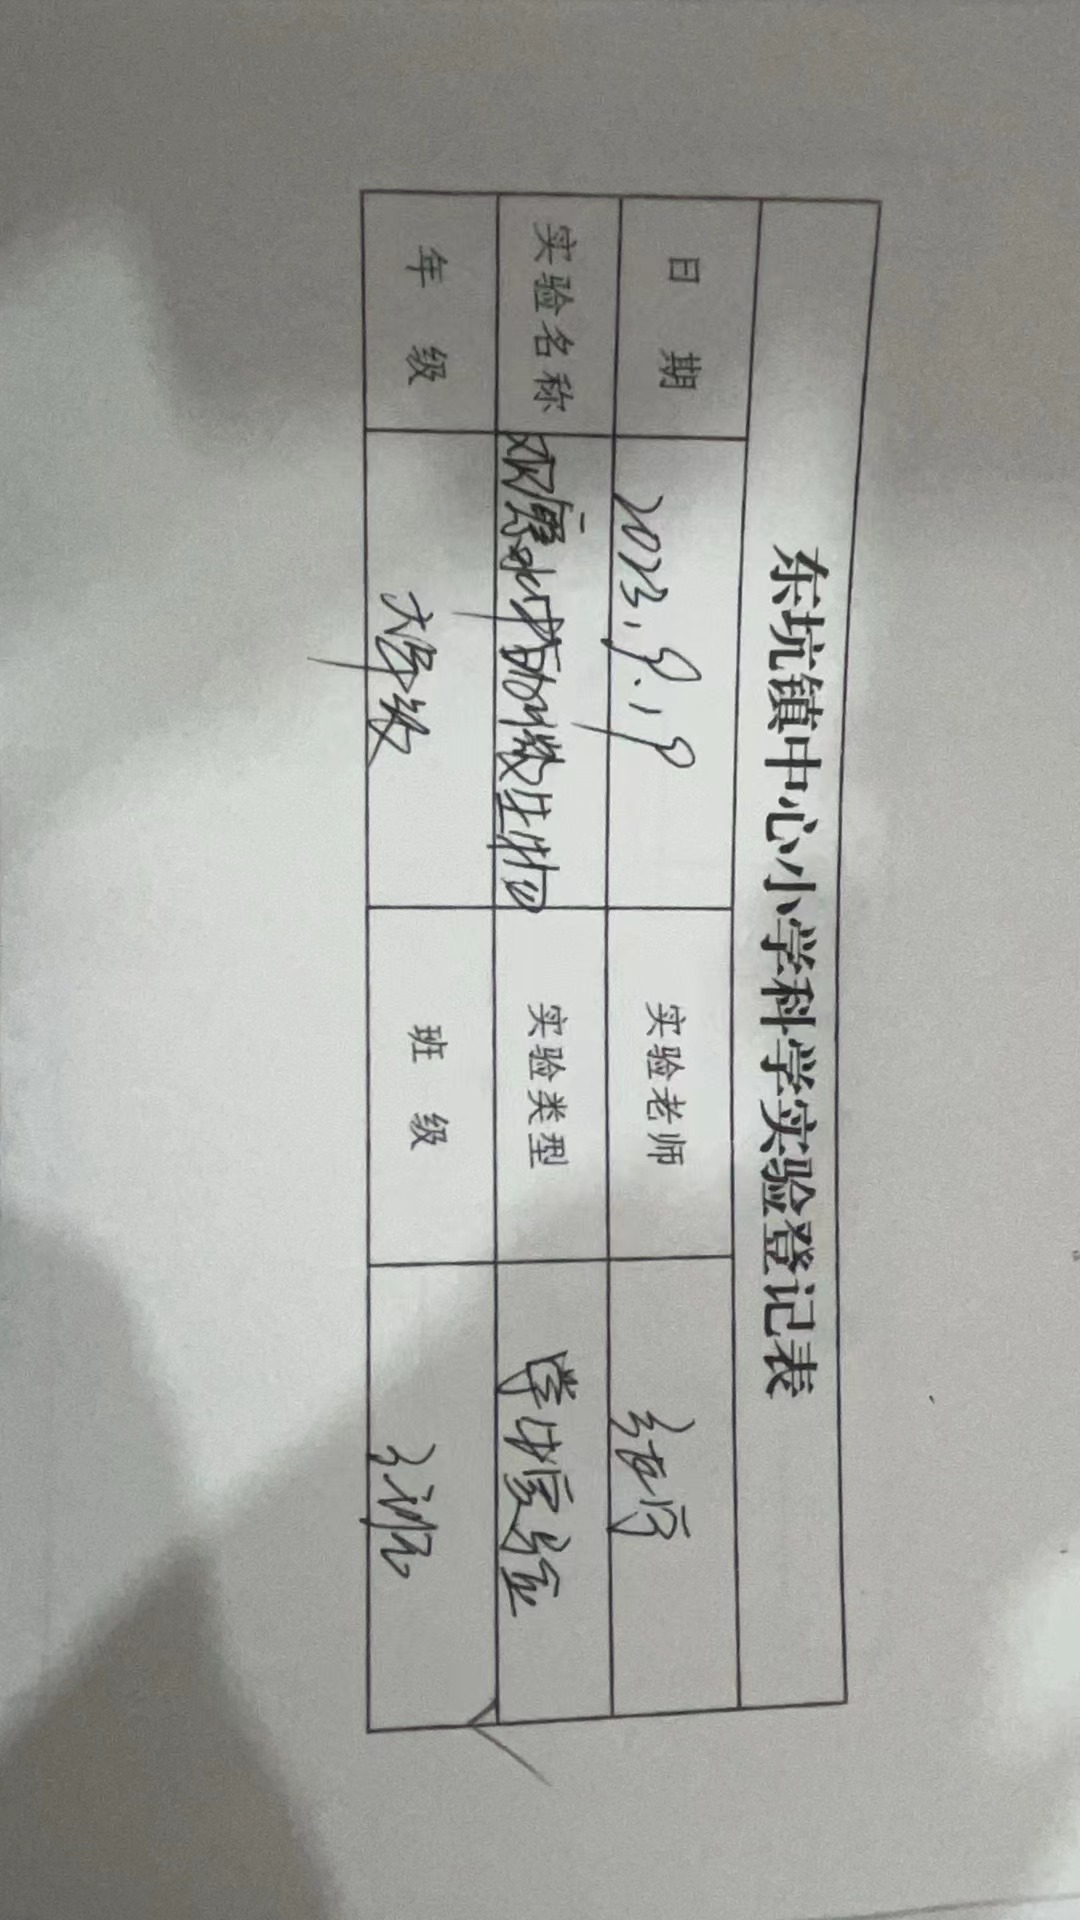 东坑镇中心小学科学实验登记表
日期 2023.9.19 实验老师
实验名称 观察水中的微生物 实验类型 学生实验
年级 六年级 班级